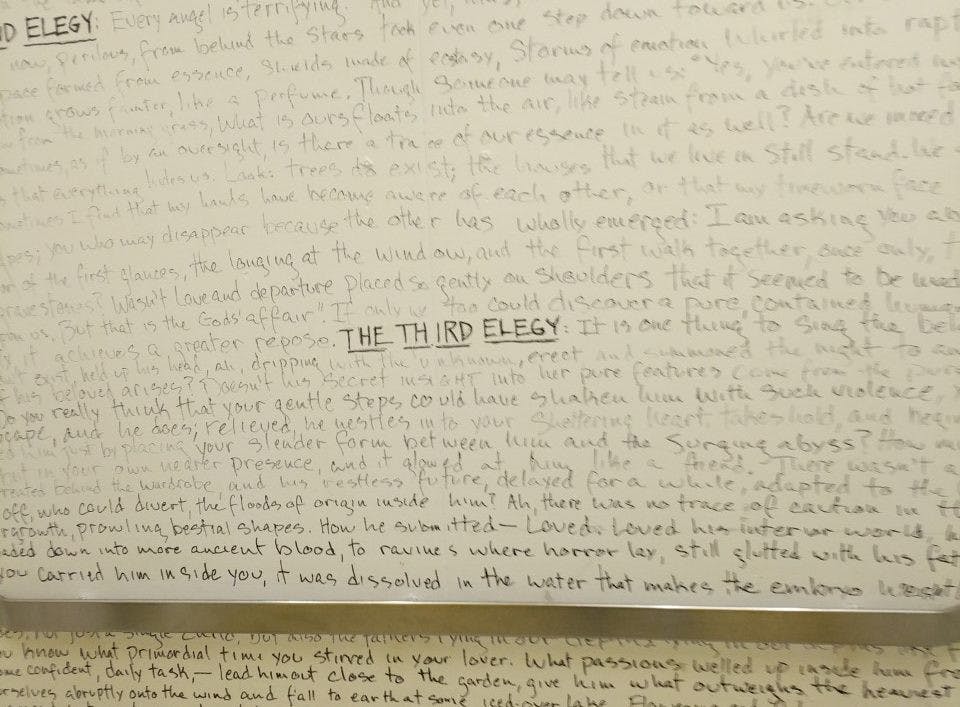 D ELEGY: Every Angel is terrifying. And yet,
now, perilous, from behind the stars took even one step down toward us.
pace formed from essence, shields made of ecstasy, storms of emotion whirled into rapt
tion grows fainter, like a perfume. Though someone may tell us: "Yes, you've entered
from the morning grass, what is ours floats into the air, like steam from a dish of hot fo
ometimes, as if by an oversight, is there a trace of our essence in it as well? Are we
that everything hides us. Look: trees do exist; the houses that we live in still stand. We
ometimes I find that my hands have become aware of each other, or that my timeworn face
you who may disappear because the other has wholly emerged: I am asking you ab
on of the first glances, the longing at the window, and the first walk together, once only,
gravestones? Wasn't love and departure placed so gently on shoulders that it seemed to be
upon us, But that is the Gods' affair". If only we too could discover a pure, contained
it achieves a greater repose. THE THIRD ELEGY: It is one thing to sing the bel
held up his head, ah, dripping with the unknown, erect and summoned the night to an
his beloved arises? Doesn't his secret insight into her pure features come from the pure
Do you really think that your gentle steps could have shaken him with such violence,
cape, and he does; relieved, he nestles into your sheltering heart, takes hold, and begin
him just by placing your slender form between him and the surging abyss? How
in your own nearer presence, and it glowed at him like a friend. There wasn't a
reated behind the wardrobe, and his restless future, delayed for a while, adapted to the
off, who could divert, the floods of origin inside him? Ah, there was no trace of caution in
rgrowth, prowling bestial shapes. How he submitted— Loved. Loved his interior world,
aded down into more ancient blood, to ravines where horror lay, still glutted with his fat
you carried him inside you, it was dissolved in the water that makes the embryo weight
not just a single child, but also the fathers lying in our
know what primordial time you stirred in your lover. What passions welled up inside him fro
ome confident, daily task,— lead him out close to the garden, give him what outweighs the heaviest
rselves abruptly onto the wind and fall to earth at some iced-over lake.